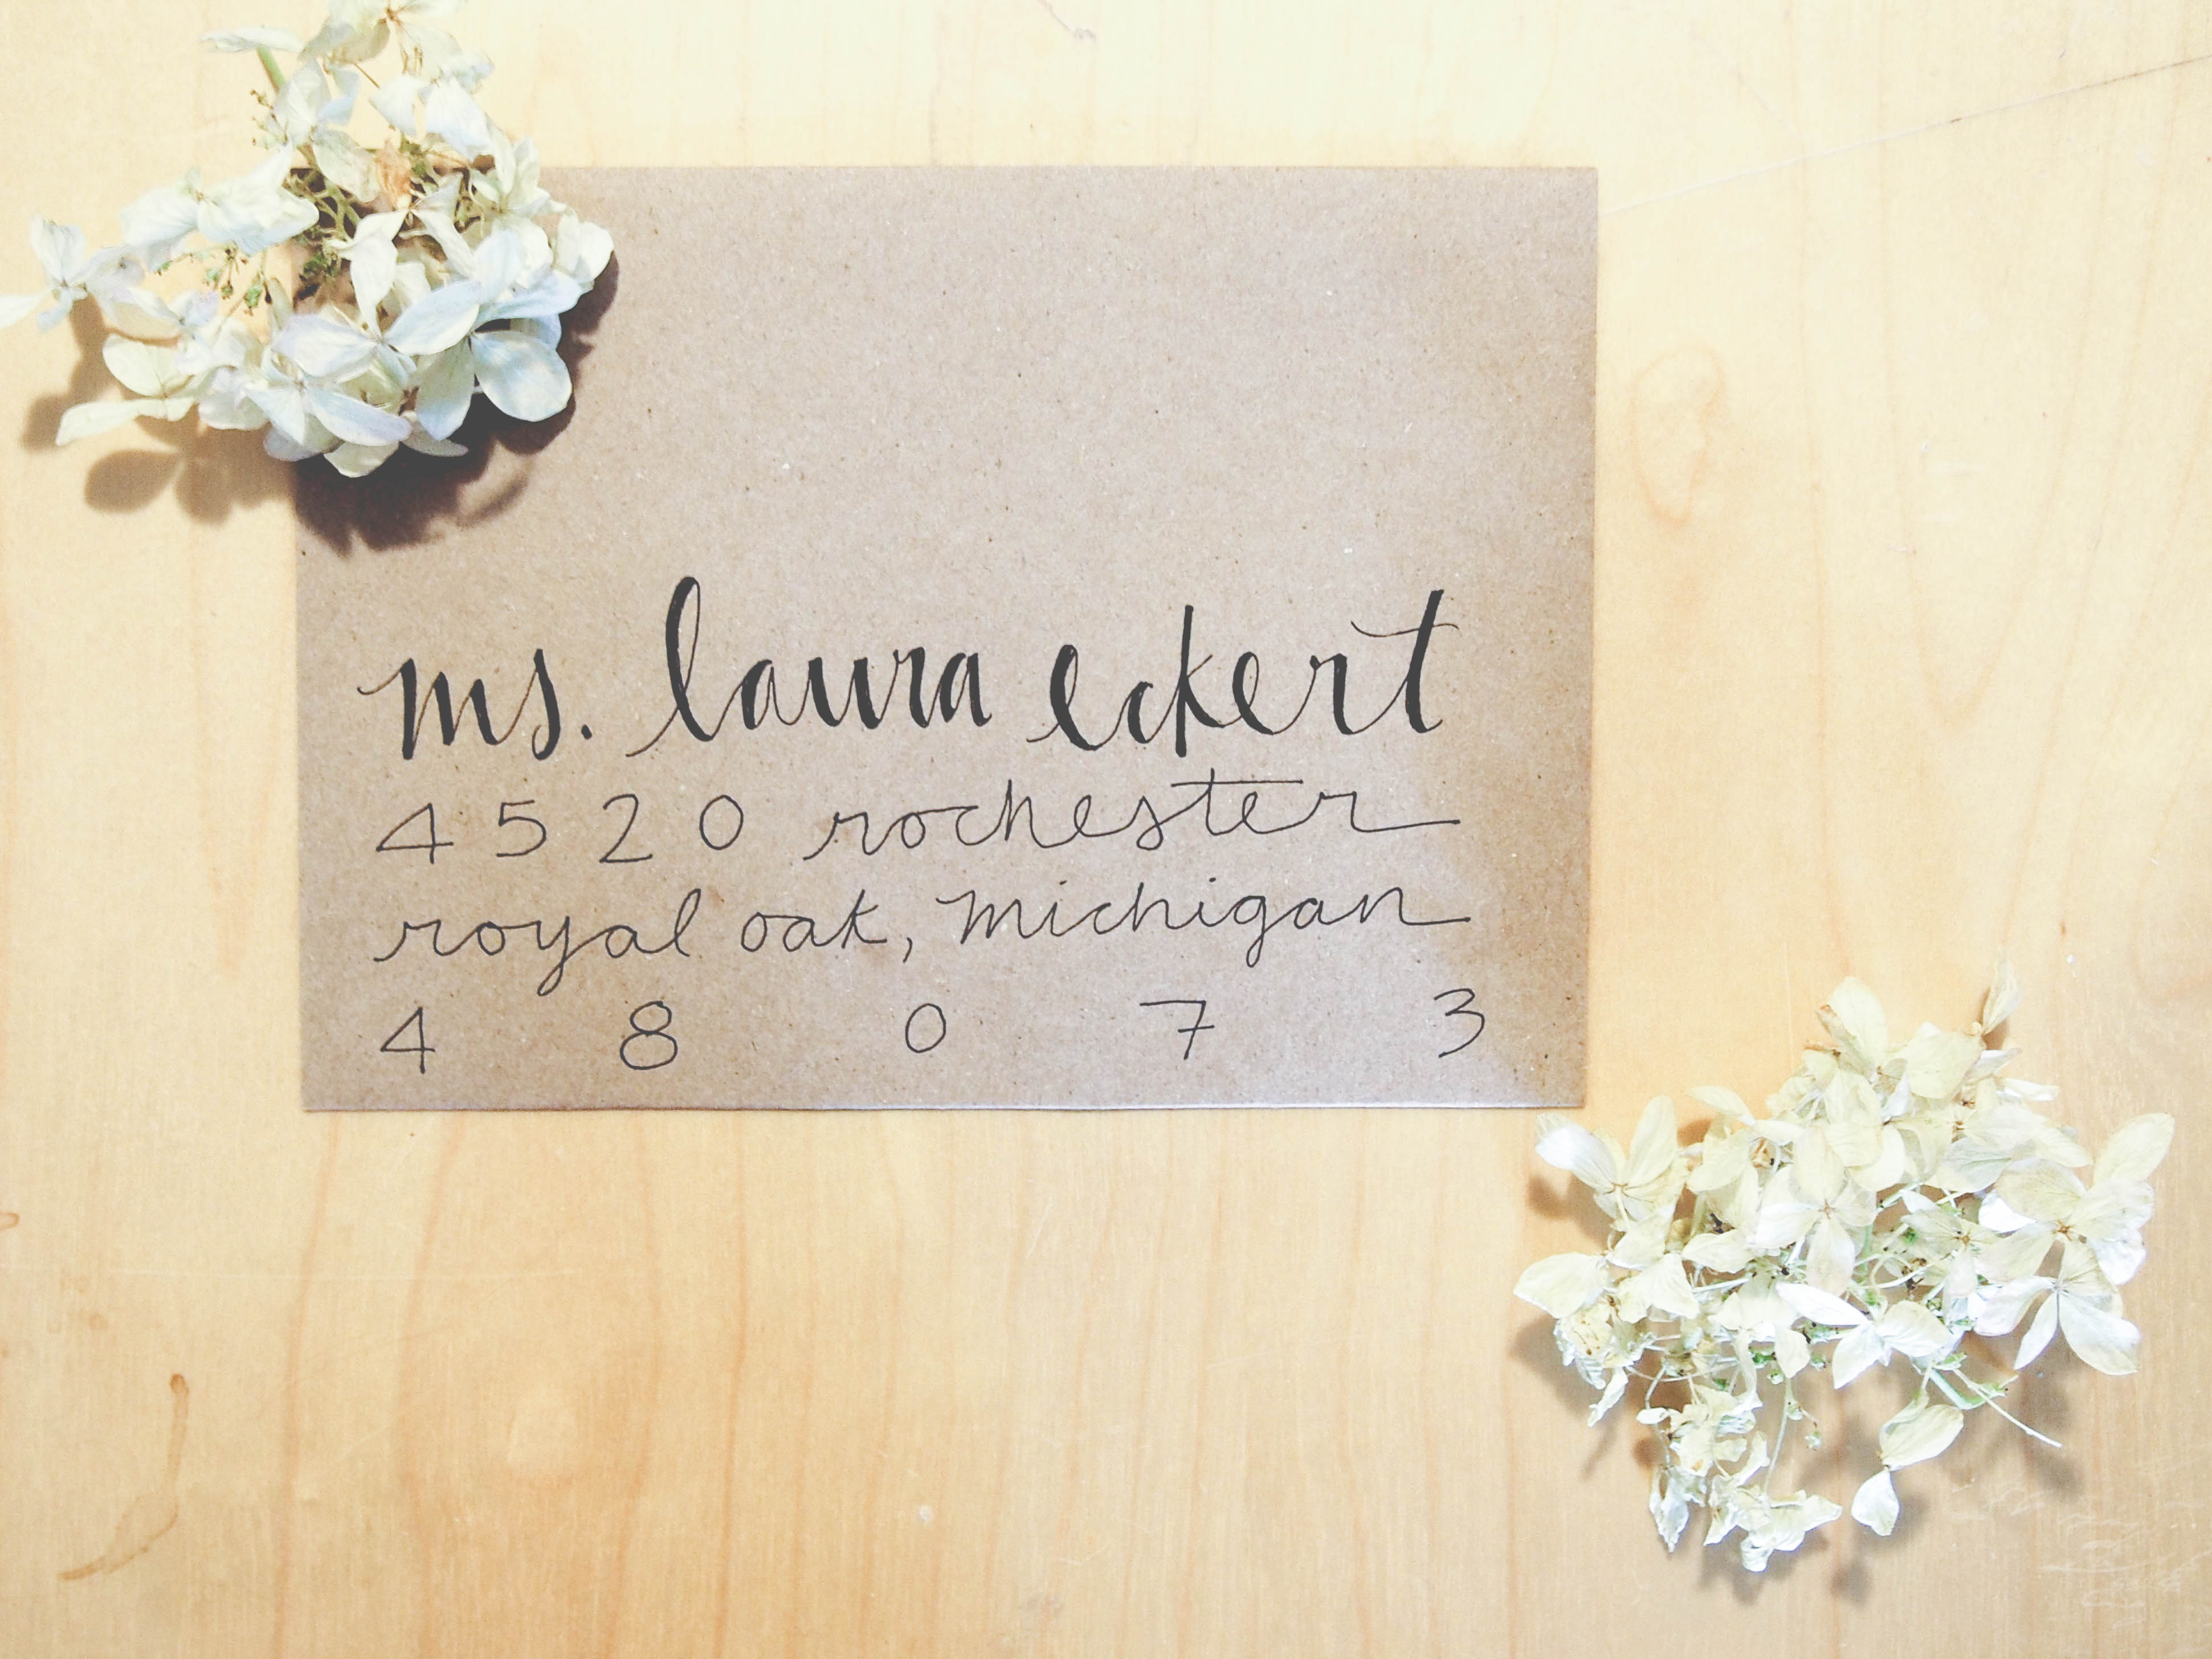 ms. laura eckert
4520 rochester
royal oak, michigan
48073